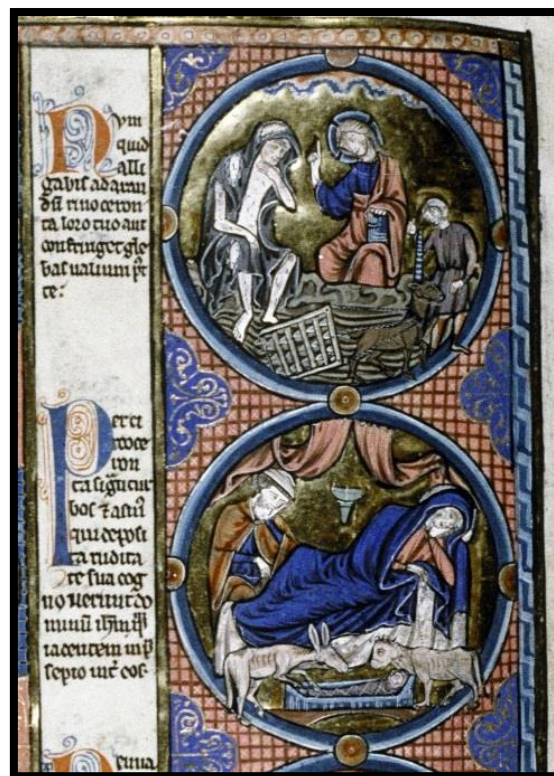 Num
quid
alli
gabis ad aran
dũ rinoceron
ta loro tuo aut
confringet gle
bas ualium p̃t
te:
Per ri
noce
ron
bos ⁊ asinꝰ
qui deposi
ta rudita
te sua cog
nouerunt do
iacentem in p̃
sepio int̾ eos·